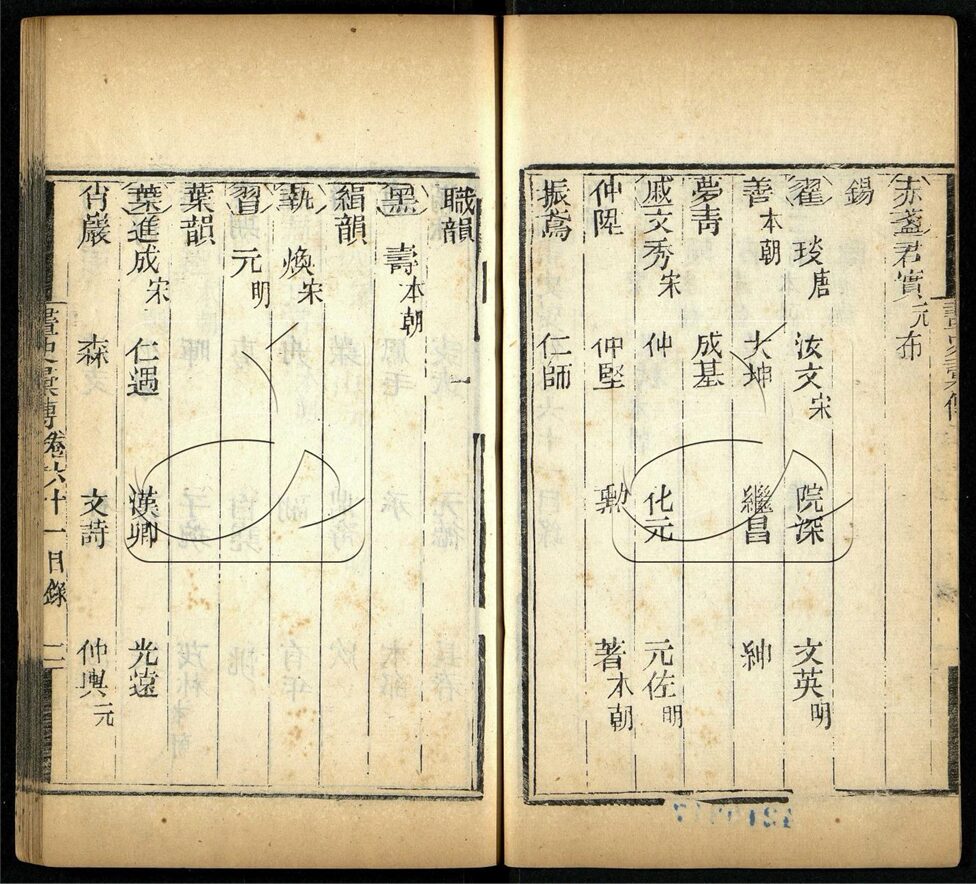 赤盞君實元布
錫
翟 琰唐 汝文宋 院深 文英明
善本朝 大坤 繼昌 紳
夢青 成基
戚文秀宋 仲 化元 元佐明
仲陞 仲堅 勳 著本朝
振鳶 仁師
職韻
黑 壽本朝
緝韻
執 煥宋
習 元明
葉韻
葉進成宋 仁遇 漢卿 光遠
肖巖 森 文詩 仲輿元
畫史彙傳 卷六十一目錄 二